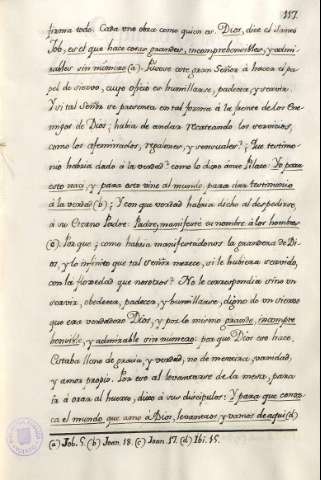 117.
firma todo. Cada uno obra como quien es. Dios, dice el Santo
Job, es el que hace cosas grandes, incomprehensibles, y admi-
rables sin número (a). Pusose este gran Señor à hacer el pa-
pel de siervo, cuyo oficio es humillarse, padecer, y servir.
Y si tal Señor se presenta en tal forma à la frente de los Exe-
mplos de Dios; habia de andar recateando los servicios,
como los afeminados, regalones, y sensuales?; Que testimo-
nio habria dado à la verdad? como lo dixo ante Pilato. Yo para
esto naci, y para esto vine al mundo, para dar testimonio
à la verdad (b); Y con que verdad habria dicho al despedirse,
à su Eterno Padre: Padre, manifesté tu nombre à los hombres
(c). Por que; como habria manifestadonos la grandeza de Di-
os, y lo infinito que tal señor merece, si le hubiera servido,
con la floxedad que nosotros? No le correspondia sino un
servir, obedecer, padecer, y humillarse, digno de un siervo
que era verdadero Dios, y por lo mismo grande, incompre
hensible, y admirable sin número: por que Dios era hace.
Estaba lleno de gracia, y verdad, no de mentira, vanidad,
y amor propio. Por eso al levantarse de la mesa, para
ir à orar al huerto, dixo à sus discipulos: Y para que conoz-
ca el mundo que amo à Dios, levantaos, y vamos de aqui (d)
(a) Job. 5. (b) Joan. 18. (c) Joan. 17. (d) Ibi. 15.